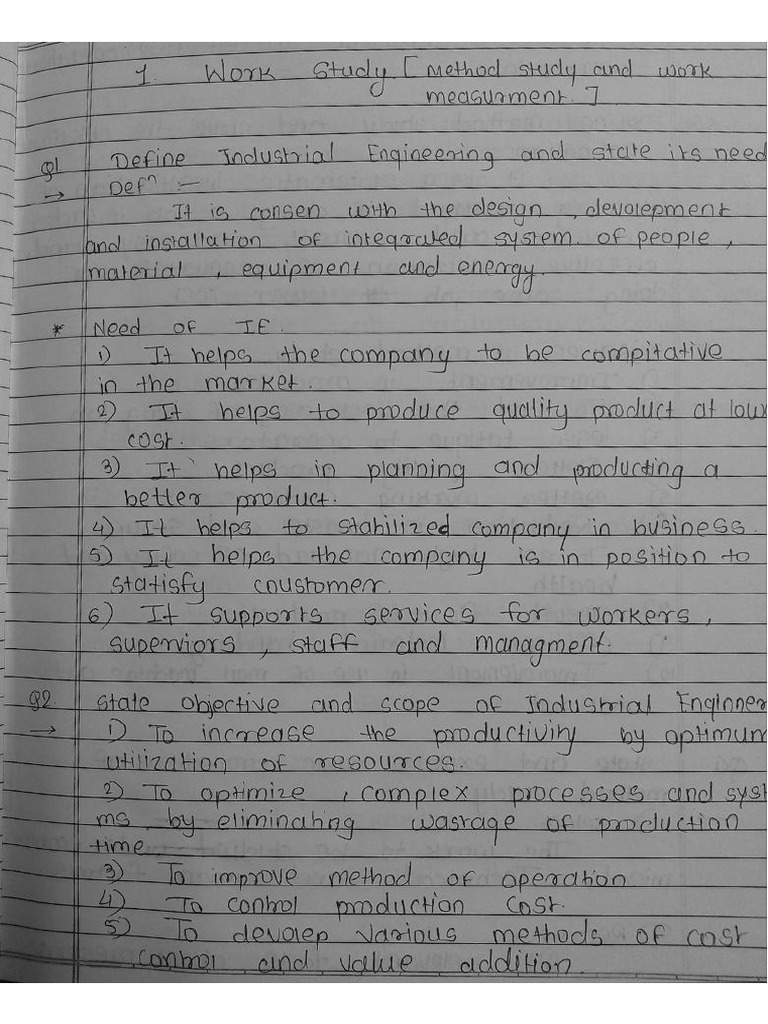 1. Work Study [ method study and work
measurment. ]
Q1 Define Industrial Engineering and state its need
→ Defn :-
It is consen with the design , devolepment
and installation of integrated system. of people ,
material , equipment and energy.
* Need of IE.
1) It helps the company to be compitative
in the market.
2) It helps to produce quality product at low
cost.
3) It helps in planning and producting a
better product.
4) It helps to stabilized company in business.
5) It helps the company is in position to
statisfy coustomer.
6) It supports services for workers ,
superviors , staff and managment.
Q2 State objective and scope of Industrial Enginner
→ 1) To increase the productivity by optimum
utilization of resources.
2) To optimize , complex processes and syst
ms by eliminating wastage of production
time
3) To improve method of operation
4) To control production cost.
5) To devolep various methods of cost
control and value addition.